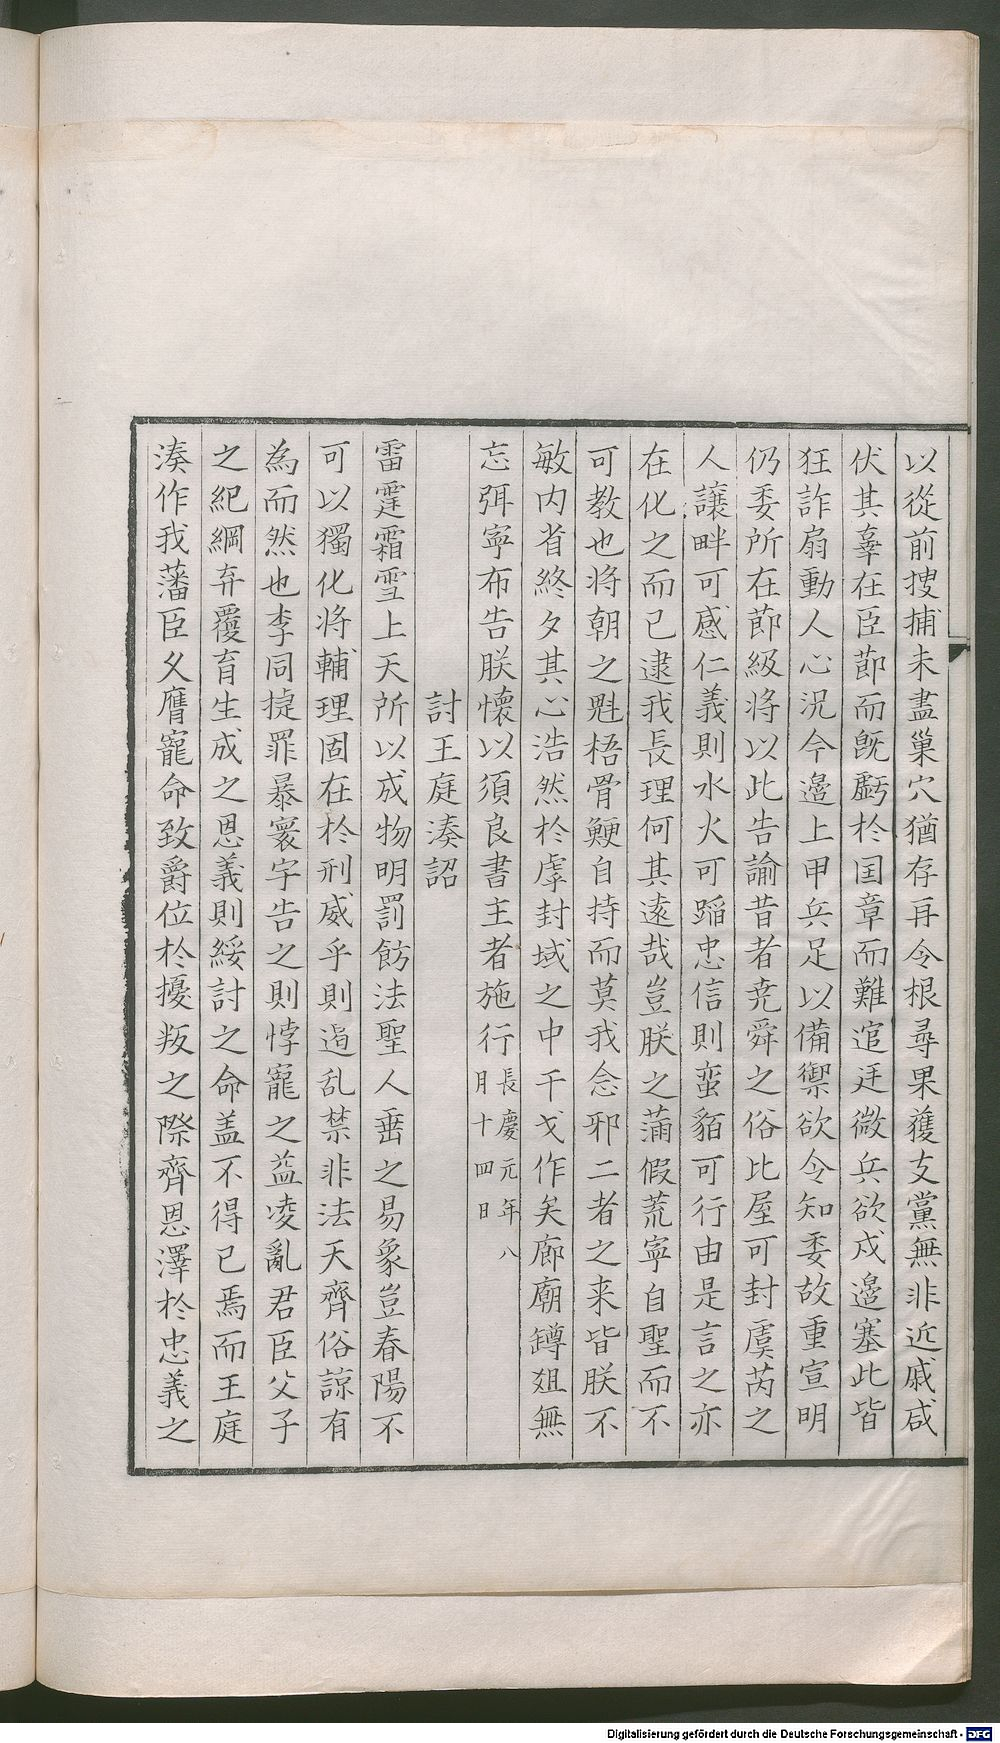 以從前搜捕未盡巢穴猶存再令根尋果獲支黨無非近戚咸
伏其辜在臣節而既虧於国章而難逭迋微兵欲戍邉塞此皆
狂詐扇動人心況今邉上甲兵足以備禦欲令知委故重宣明
仍委所在節級將以此告諭昔者尭舜之俗比屋可封虞芮之
人讓畔可感仁義則水火可蹈忠信則蛮貊可行由是言之亦
在化之而已逮我長理何其遠哉豈朕之蒲假荒寧自聖而不
可教也将朝之魁梧骨鯁自持而莫我念邪二者之来皆朕不
敏内省終夕其心浩然於虖封域之中干戈作矣廊廟鐏爼無
忘弭寧布告朕懐以須良書主者施行長慶元年八月十四日
討王庭湊詔
雷霆霜雪上天所以成物明罰飭法聖人垂之易象豈春陽不
可以獨化将輔理固在於刑威乎則逅乱禁非法天齊俗諒有
為而然也李同㨗罪暴寰宇告之則悖寵之益凌亂君臣父子
之紀綱弃覆育生成之恩義則綏討之命盖不得已焉而王庭
湊作我藩臣乆膺寵命致爵位於擾叛之際齊恩澤於忠義之
Digitalisierung gefördert durch die Deutsche Forschungsgemeinschaft - DFG